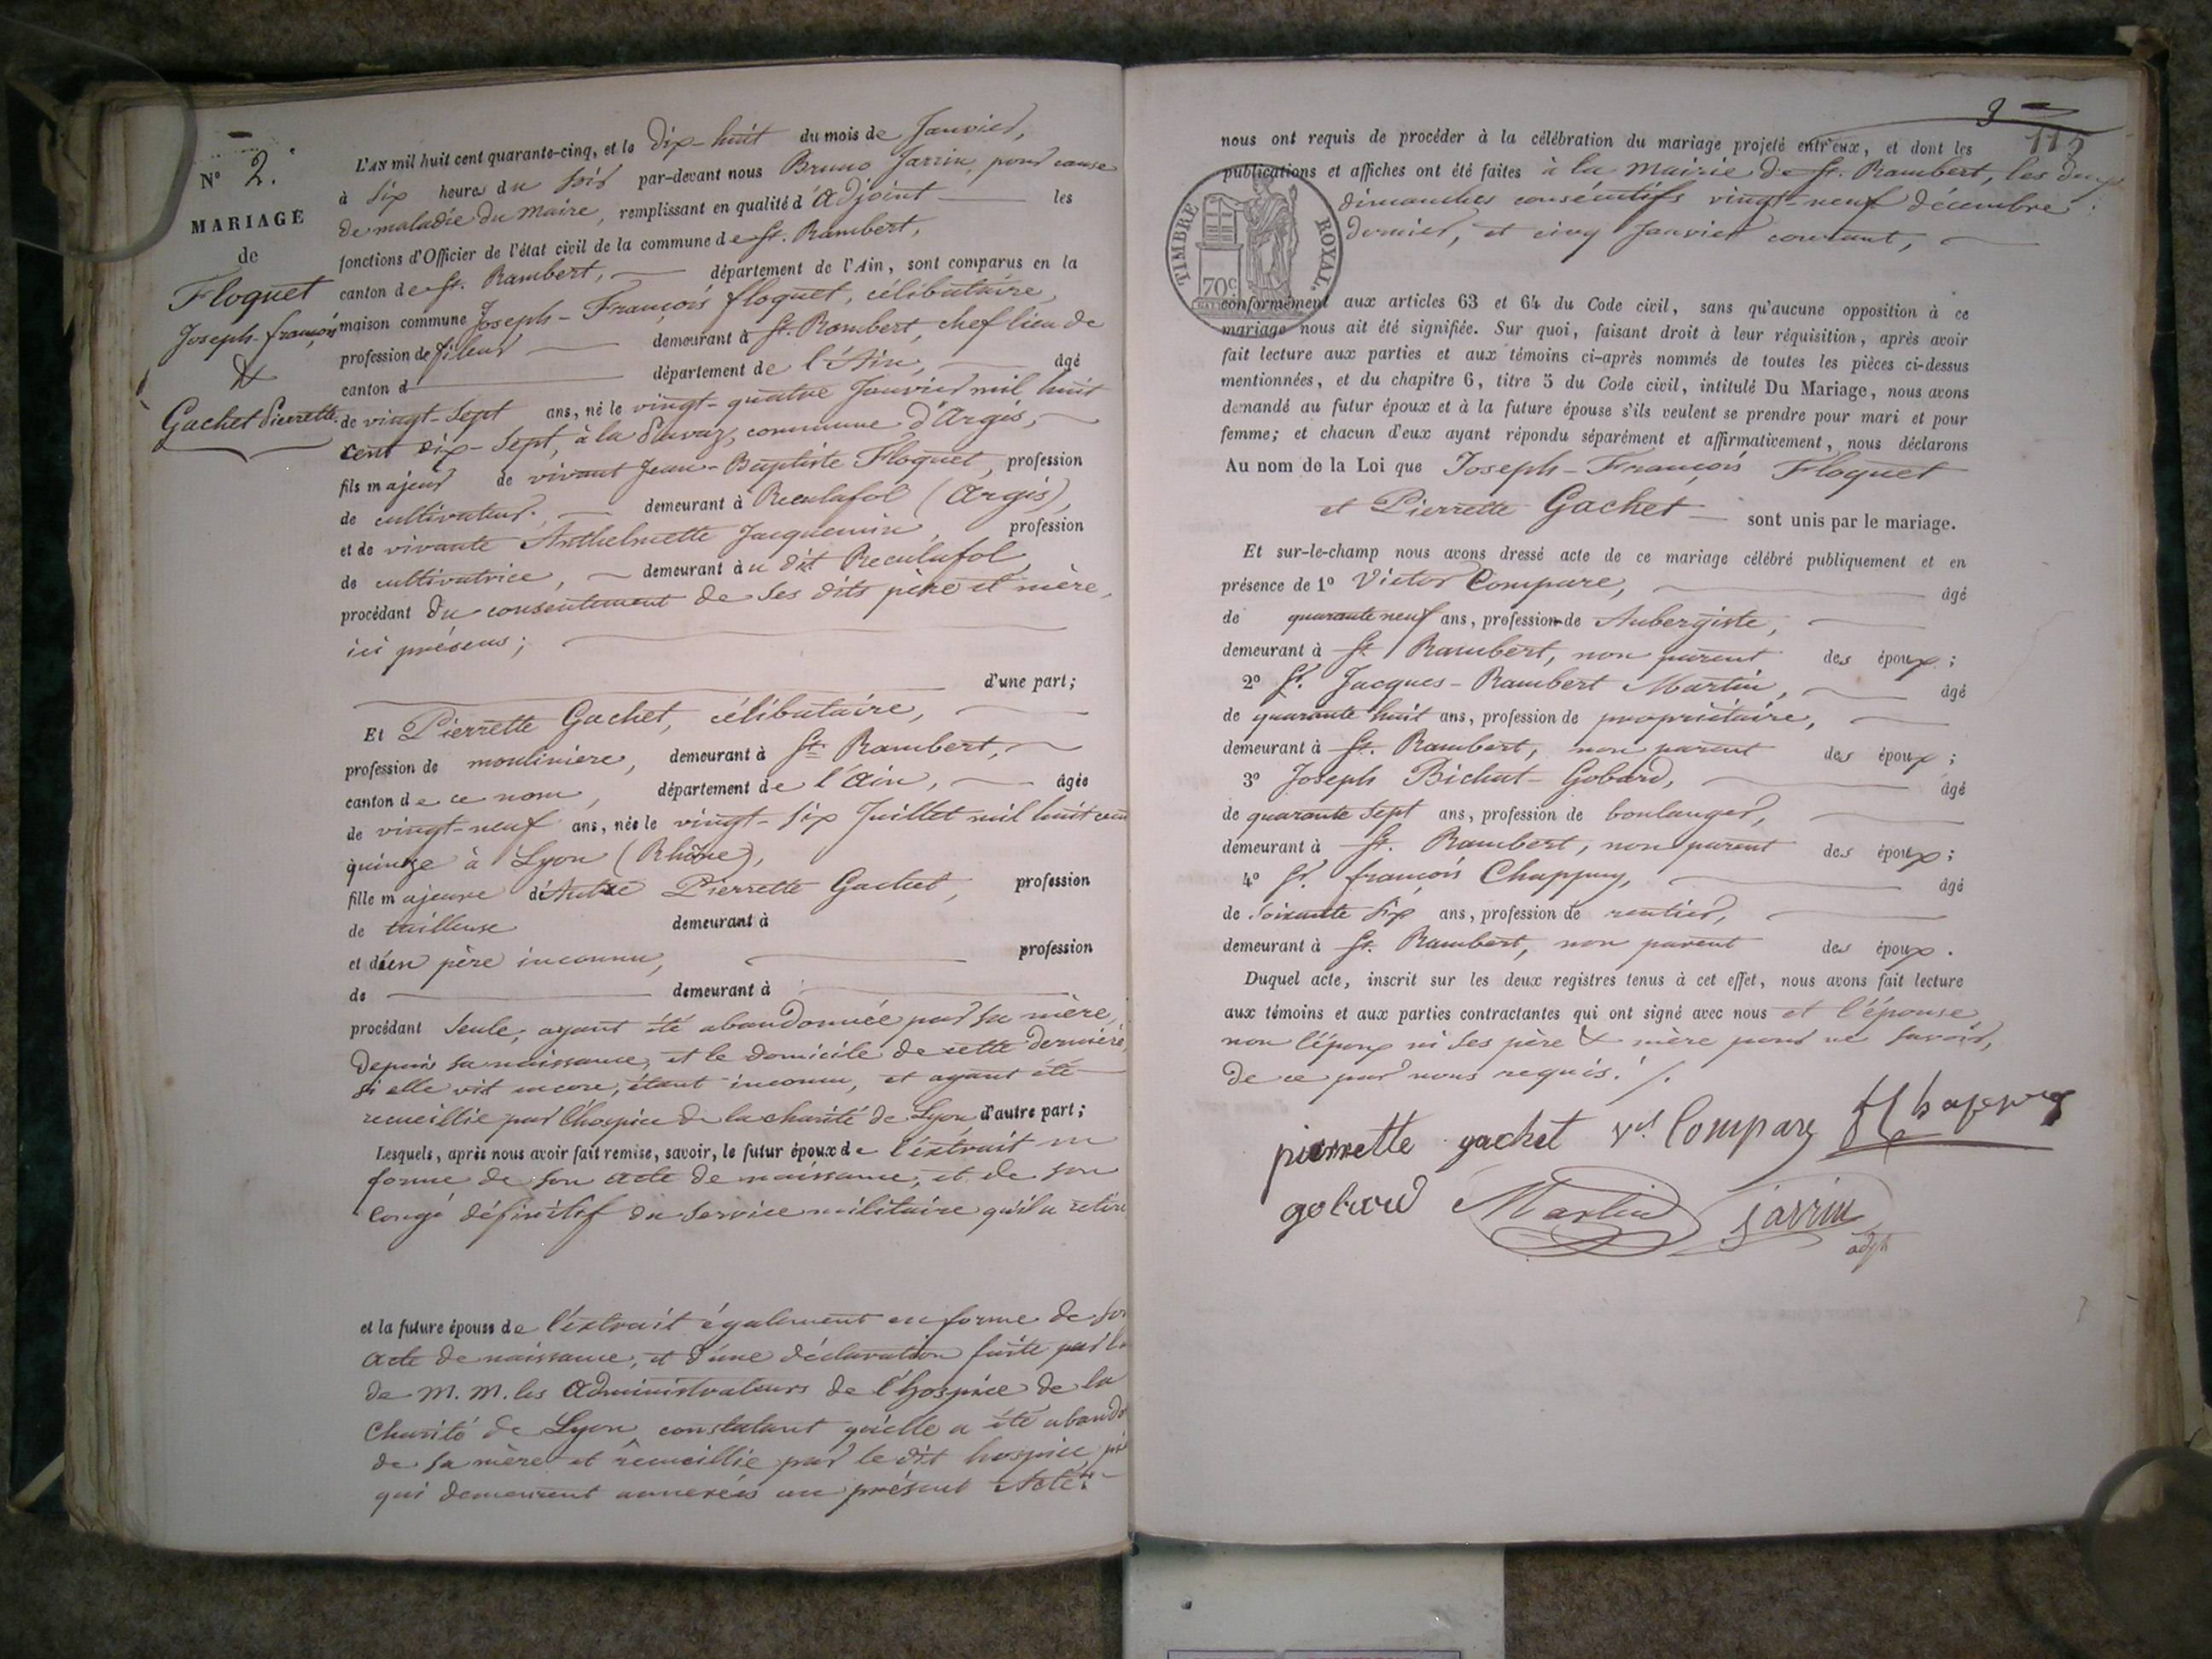 N° 2.
MARIAGE
de
Floquet
Joseph-François
&
Gachet Pierrette.
L'AN mil huit cent quarante-cinq, et le dix-huit du mois de Janvier,
à six heures du soir par-devant nous Bruno Jarrin, pour cause
de maladie du Maire, remplissant en qualité d'Adjoint les
fonctions d'Officier de l'état civil de la commune de St. Rambert,
canton de St. Rambert, département de l'Ain, sont comparus en la
maison commune Joseph-François floquet, célibataire,
profession de fileur demeurant à St. Rambert, chef lieu de
canton d département de l'Ain, âgé
de vingt-sept ans, né le vingt-quatre Janvier mil huit
cent dix-sept, à la commune d'Argis,
fils majeur de vivant Jean-Baptiste Floquet, profession
de cultivateur, demeurant à Reculafol (Argis),
et de vivante Anthelmette Jacquemin, profession
de cultivatrice, demeurant à u dit Reculafol,
procédant du consentement de ses dits père et mère,
ici présens;
d'une part;
Et Pierrette Gachet, célibataire,
profession de moulinière, demeurant à St. Rambert,
canton de ce nom, département de l'Ain, âgée
de vingt-neuf ans, née le vingt-six Juillet mil huit cent
quinze à Lyon (Rhône),
fille majeure d'Autre Pierrette Gachet, profession
de tailleuse demeurant à
et d'un père inconnu, profession
de demeurant à
procédant seule, ayant été abandonnée par sa mère,
depuis sa naissance, et le domicile de cette dernière,
si elle vit encore, étant inconnu, et ayant été
recueillie par l'hospice de la charité de Lyon d'autre part;
Lesquels, après nous avoir fait remise, savoir, le futur époux de l'extrait en
forme de son acte de naissance, et de son
congé définitif du service militaire qu'il a retiré
et la future épouse de l'extrait également en forme de son
acte de naissance, et d'une déclaration faite par l
de M. M. les Administrateurs de l'hospice de la
Charité de Lyon constatant qu'elle a été abando
de sa mère et recueillie par le dit hospice,
qui demeurent annexées au présent Acte.
3
113
nous ont requis de procéder à la célébration du mariage projeté entr'eux, et dont les
publications et affiches ont été faites à la Mairie de St. Rambert, les deux
dimanches consécutifs vingt-neuf décembre
dernier, et cinq Janvier courant,
TIMBRE ROYAL.
70c
conformément aux articles 63 et 64 du Code civil, sans qu'aucune opposition à ce
mariage nous ait été signifiée. Sur quoi, faisant droit à leur réquisition, après avoir
fait lecture aux parties et aux témoins ci-après nommés de toutes les pièces ci-dessus
mentionnées, et du chapitre 6, titre 5 du Code civil, intitulé Du Mariage, nous avons
demandé au futur époux et à la future épouse s'ils veulent se prendre pour mari et pour
femme; et chacun d'eux ayant répondu séparément et affirmativement, nous déclarons
Au nom de la Loi que Joseph-François Floquet
et Pierrette Gachet sont unis par le mariage.
Et sur-le-champ nous avons dressé acte de ce mariage célébré publiquement et en
présence de 1° Victor Compare, âgé
de quarante neuf ans, profession de Aubergiste,
demeurant à St. Rambert, non parent des époux;
2° Sr. Jacques-Rambert Martin, âgé
de quarante huit ans, profession de propriétaire,
demeurant à St. Rambert, non parent des époux;
3° Joseph Bichat-Gobard, âgé
de quarante sept ans, profession de boulanger,
demeurant à St. Rambert, non parent des époux;
4° Sr. françois Chappuy, âgé
de soixante six ans, profession de rentier,
demeurant à St. Rambert, non parent des époux.
Duquel acte, inscrit sur les deux registres tenus à cet effet, nous avons fait lecture
aux témoins et aux parties contractantes qui ont signé avec nous et l'épouse
non l'époux ni ses père & mère pour ne savoir,
de ce par nous requis. /.
pierrette gachet Vor Compare
gobard Martin jarrin
adjt